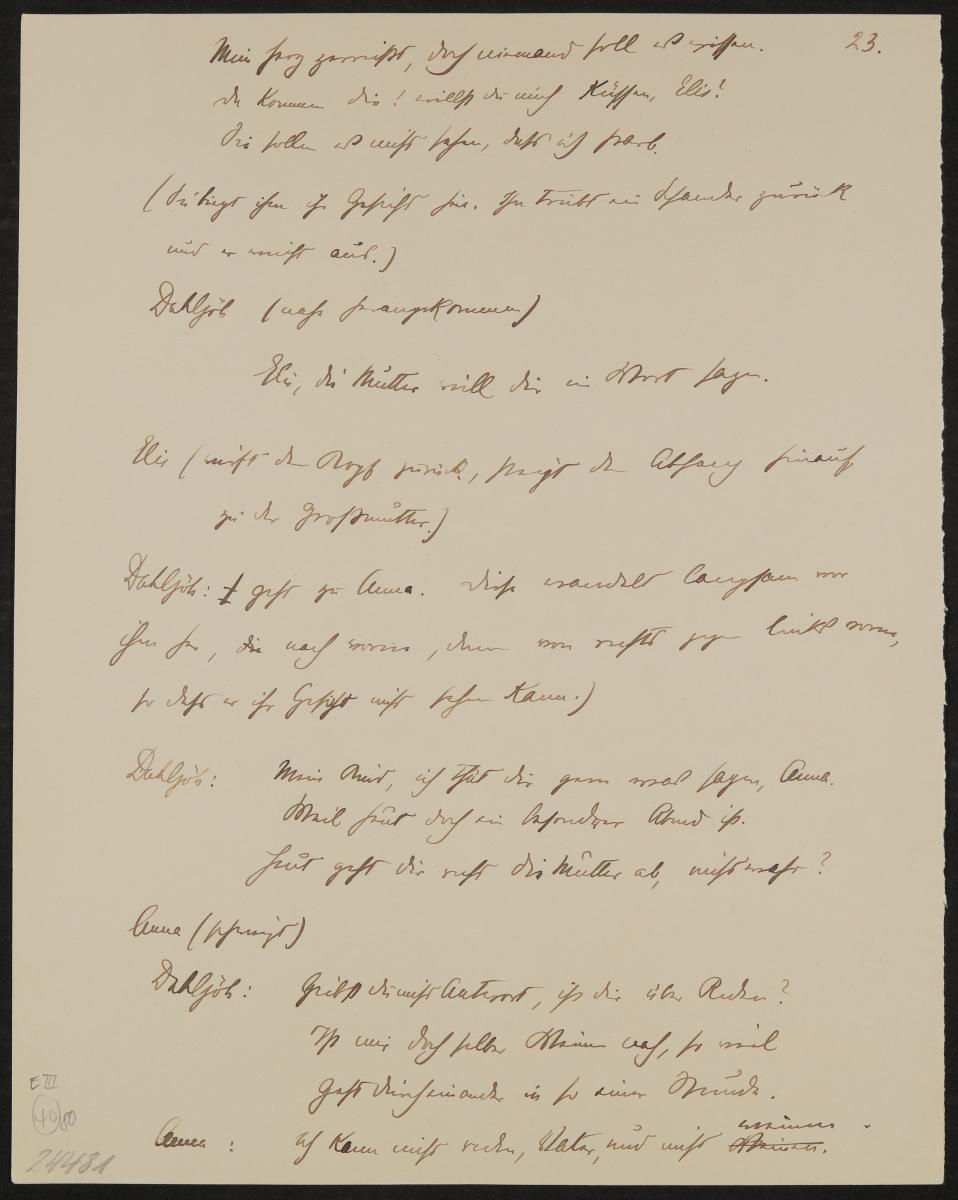 23.
Mein Herz zerreißt, doch niemand soll es wissen.
Da kommen die! willst du mich Küssen, Elis?
Sie sollen es nicht sehen, daß ich starb.
(Sie biegt ihm ihr Gesicht hin. Ihn treibt ein Schauder zurück
und er weicht aus.)
Dahlsjöh (nah herangekommen)
Elis, die Mutter will dir ein Wort sagen.
Elis (wirft den Kopf zurück, steigt den Abhang hinauf
zu der Großmutter.)
Dahlsjöh: geht zu Anna. Diese wandelt langsam vor
ihm her, die nach vorne, dann von rechts gegen links vorne,
so daß er ihr Gesicht nicht sehen Kann.)
Dahlsjöh: Mein Kind, ich thät dir gern was sagen, Anna.
Weil heut doch ein besondrer Abend ist.
Heut geht dir recht die Mutter ab, nicht wahr?
Anna (schweigt)
Dahlsjöh: Giebst du nicht Antwort, ist dir übel Reden?
Ist mir doch selber Weinen nah, so viel
Geht durcheinander in so einer Stunde.
weinen.
Anna: Ich Kann nicht reden, Vater, und nicht Weinen.
E III
40 80
24481